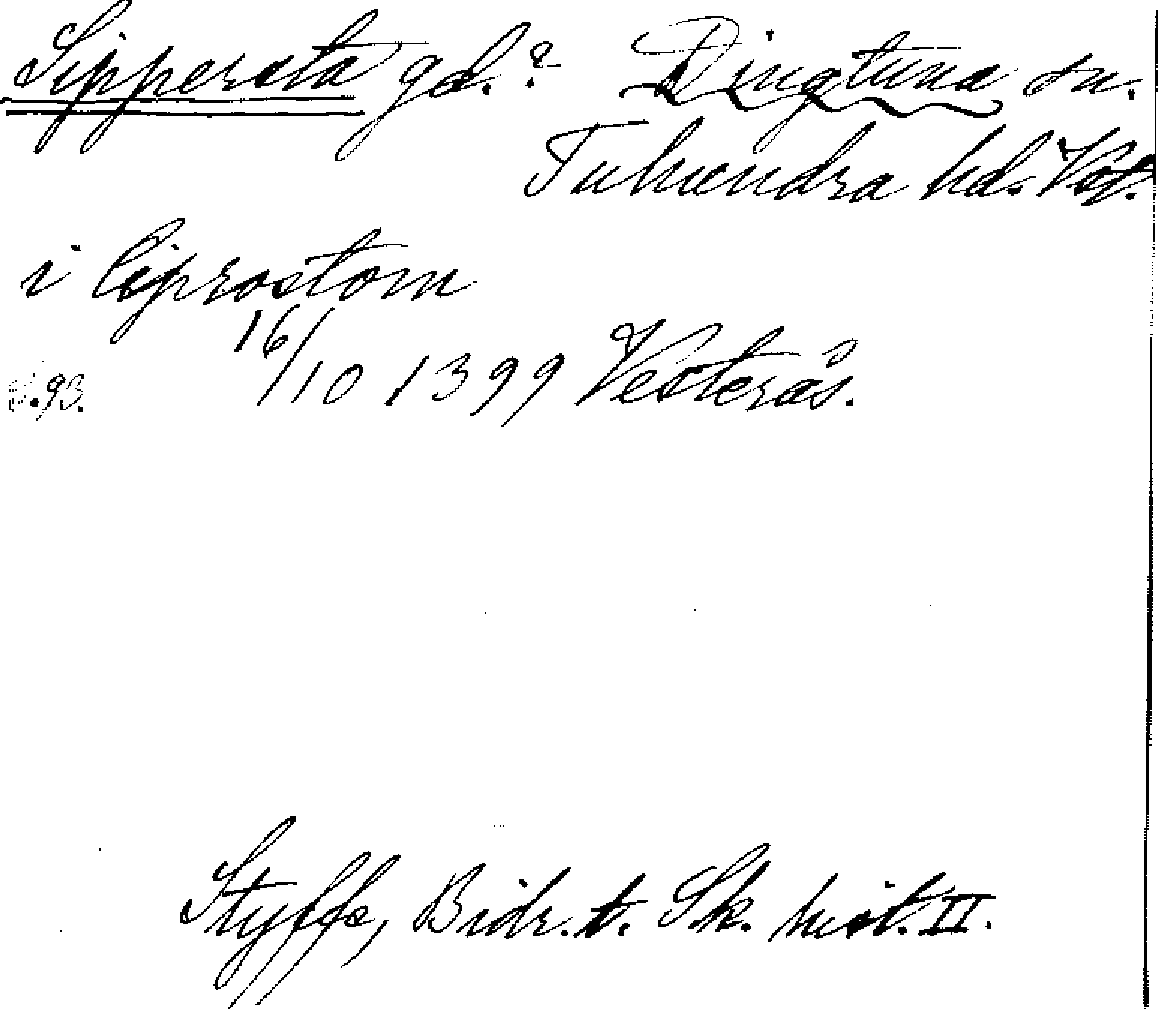 Sippersta gd.? Dingtuna sn.
Tuhundra hd. Vst.
i liprostom
16/10 1399 Vesterås.
s.93.
Styffe, Bidr. t. Sk. hist. II.